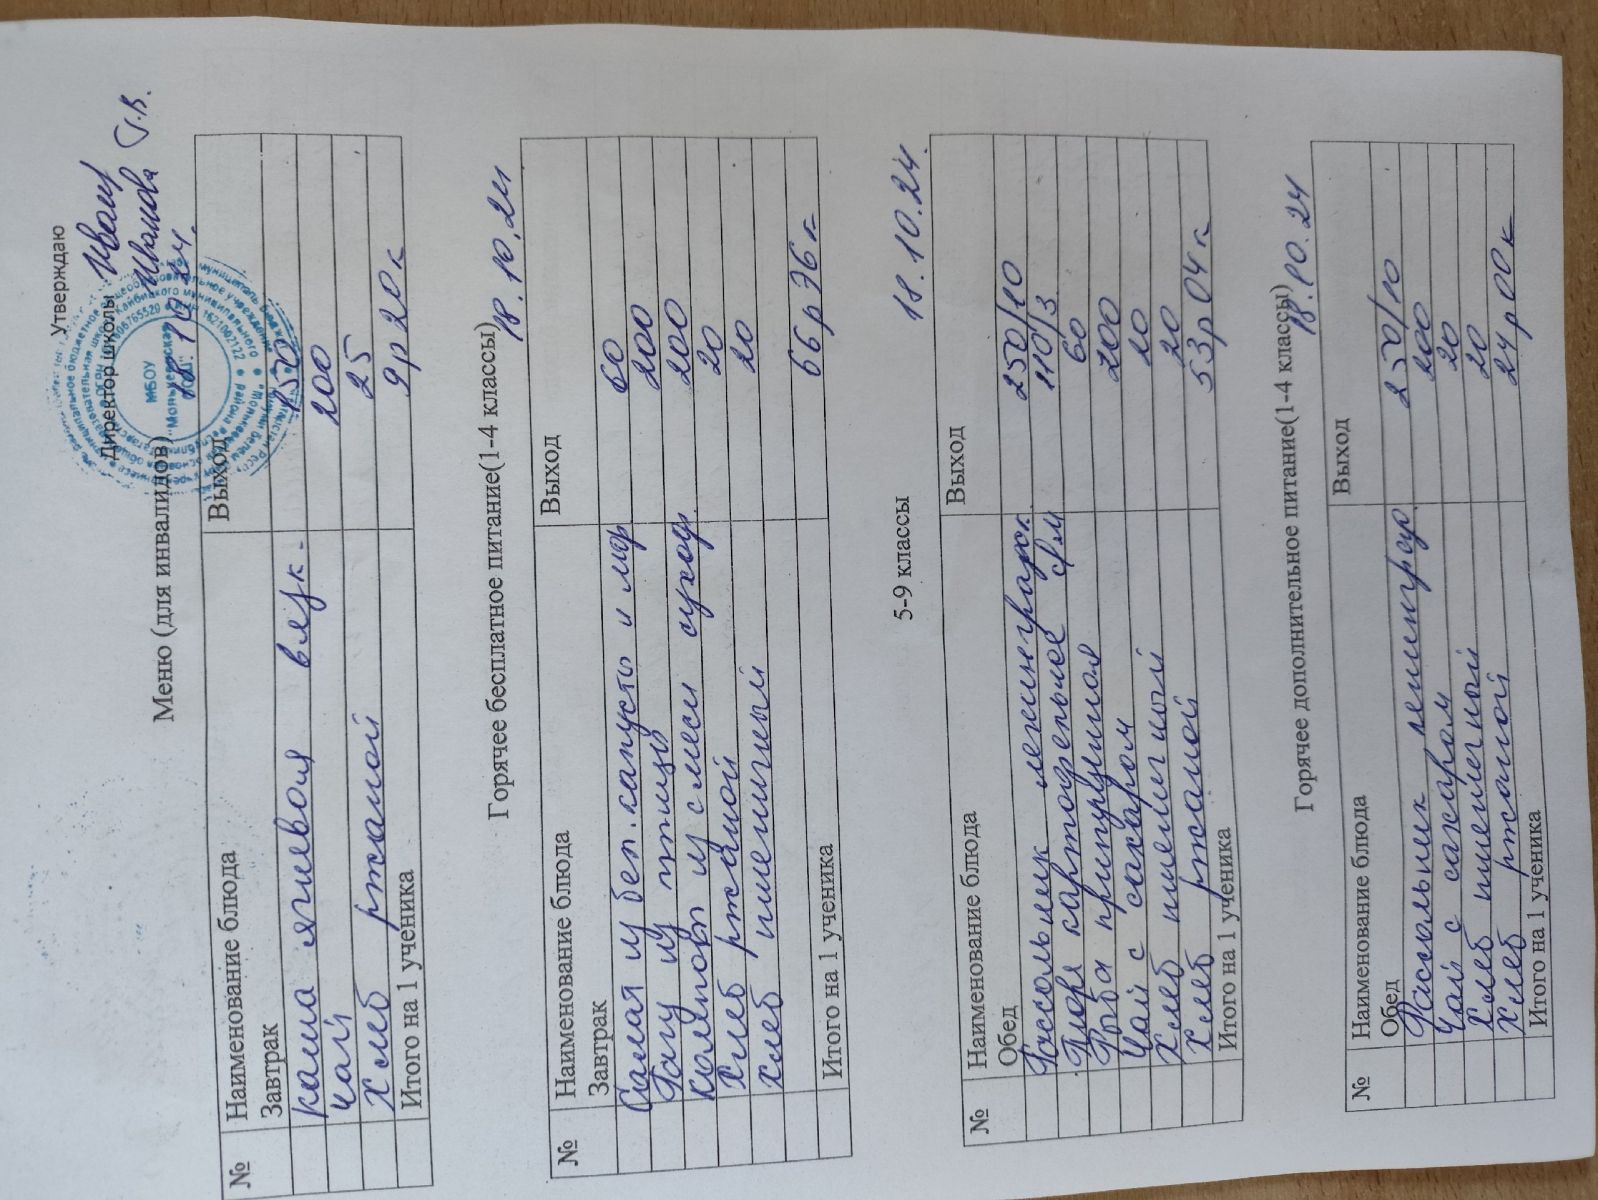 Утверждаю
Директор школы Иван
Иванова Т.В.
Меню (для инвалидов) 18.10.24.
МБОУ
№ Наименование блюда Выход
Завтрак
каша ячневая вязк. 150
чай 200
Хлеб ржаной 25
Итого на 1 ученика 9р20к
Горячее бесплатное питание(1-4 классы) 18.10.24
№ Наименование блюда Выход
Завтрак
Салат из бел.капусты и мор 60
Рагу из птицы 200
компот из смеси сухоф 200
Хлеб ржаной 20
хлеб пшеничный 20
Итого на 1 ученика 66р96к
5-9 классы 18.10.24.
№ Наименование блюда Выход
Обед
Рассольник ленинградск 250/10
Пюре картофельное с/м 110/3
Рыба припущенная 60
Чай с сахаром 200
Хлеб пшеничный 20
Хлеб ржаной 20
Итого на 1 ученика 53р04к
Горячее дополнительное питание(1-4 классы) 18.10.24
№ Наименование блюда Выход
Обед
Рассольник ленингр 250/10
Чай с сахаром 200
Хлеб пшеничный 20
Хлеб ржаной 20
Итого на 1 ученика 24р00к